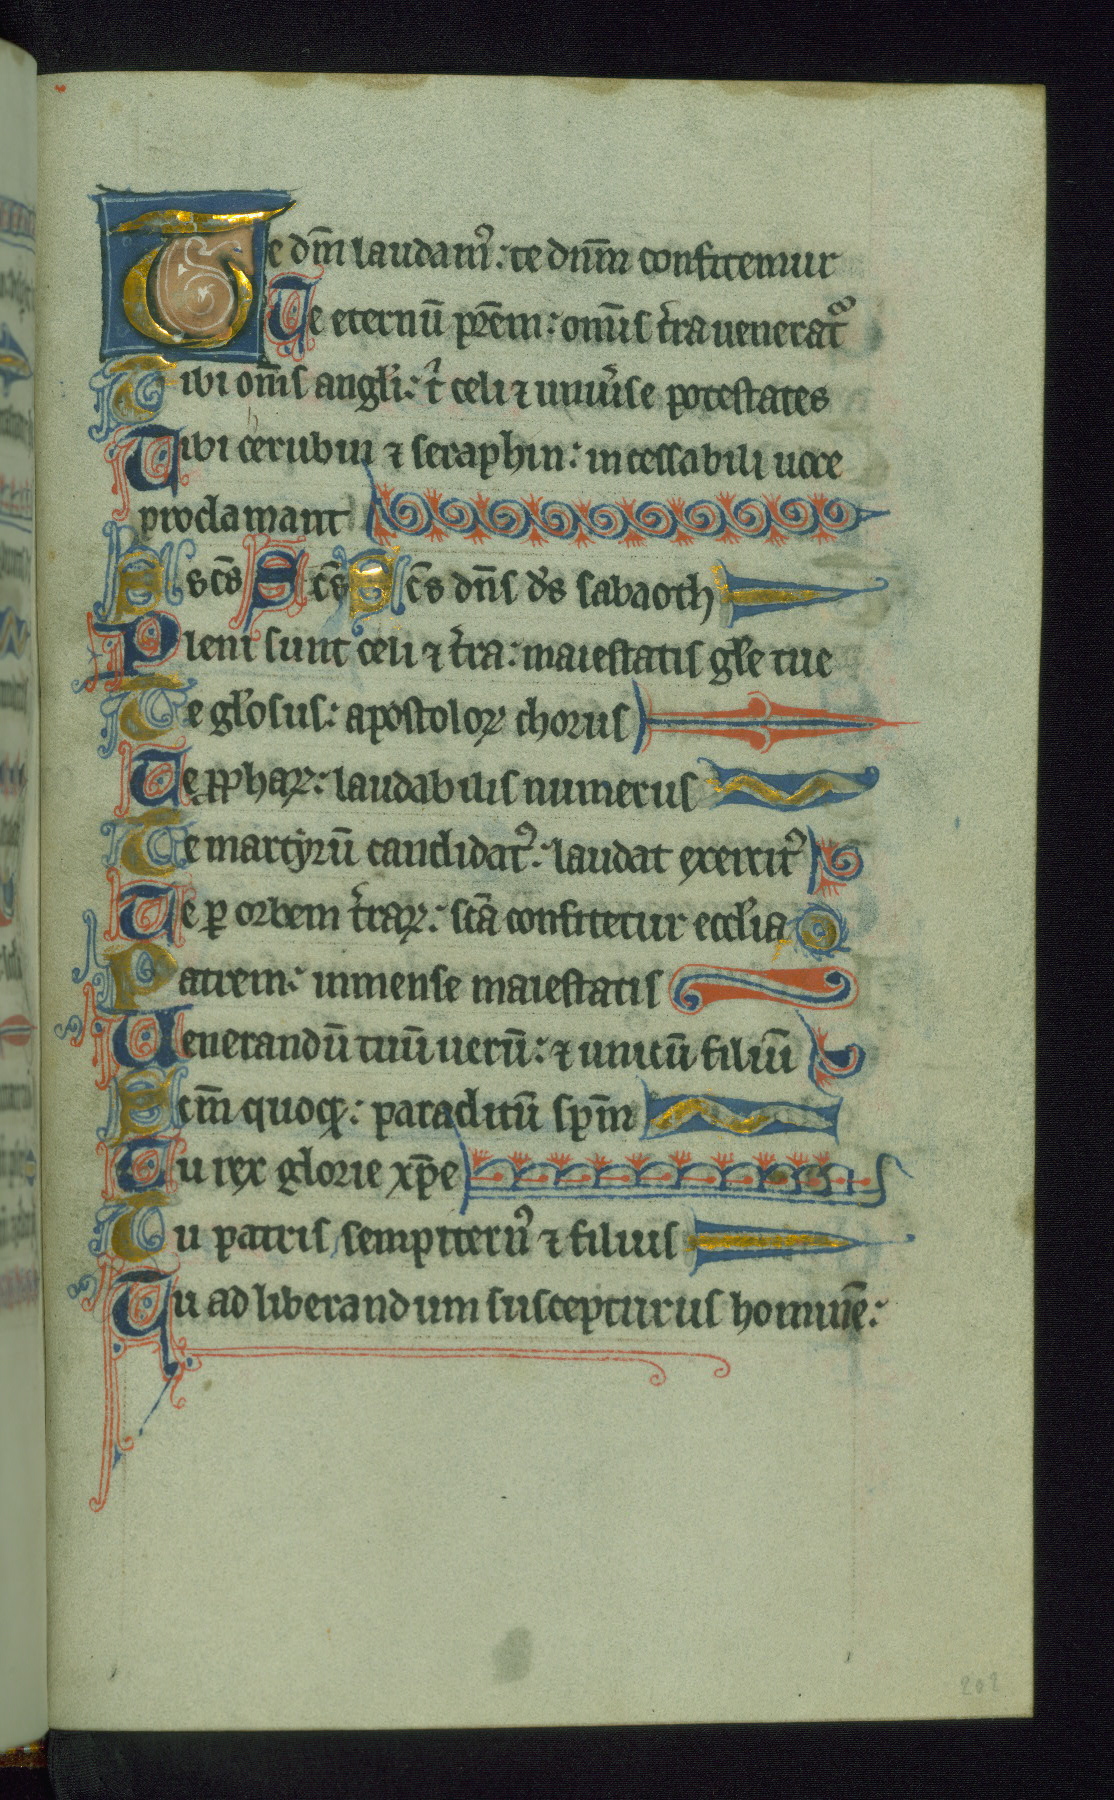 Te dm̄ laudam᷒: te dn̄m confitemur
Te eternū pr̄em: om̄is tr̄a ueneratᷓ
Tibi om̄s angl̓i: t᷑ celi ⁊ uniu᷑se potestates
Tibi cerubin ⁊ seraphin: incessabili uoce
proclamant
Ss cs̄ Scs̄ Scs̄ dn̄s ds̓ sabaoth
Pleni sunt celi ⁊ tr̓a: maiestatis gl̓e tue
Te gl̓osus: apostoloꝝ chorus
Te ꝓphaꝝ: laudabilis numerus
Te martyrū candidat᷒: laudat exercit᷒
Te ꝑ orbem tr̓aꝝ: scā confitetur eccl̓ia
Patrem: inmense maiestatis
Uenerandū tuū uerū: ⁊ unicū filiū
Scm̄ quoqꝫ: paraclitū sp̄m
Tu rex glorie xp̄e
Tu patris sempitern᷒ ⁊ filius
Tu ad liberandum suscepturus hominē:
202